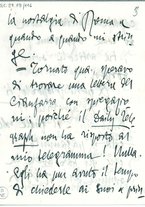 la nostalgia di Roma a
quando a quando mi strin
ge —
— Tornato qua, speravo
di trovare una lettera del
Cianfarra con spiegazio
ni: perché il Daily Tele-
graph non ha risposto al
mio telegramma? Nulla.
Egli ha pur avuto il tempo
di chiedere ai suoi a prin